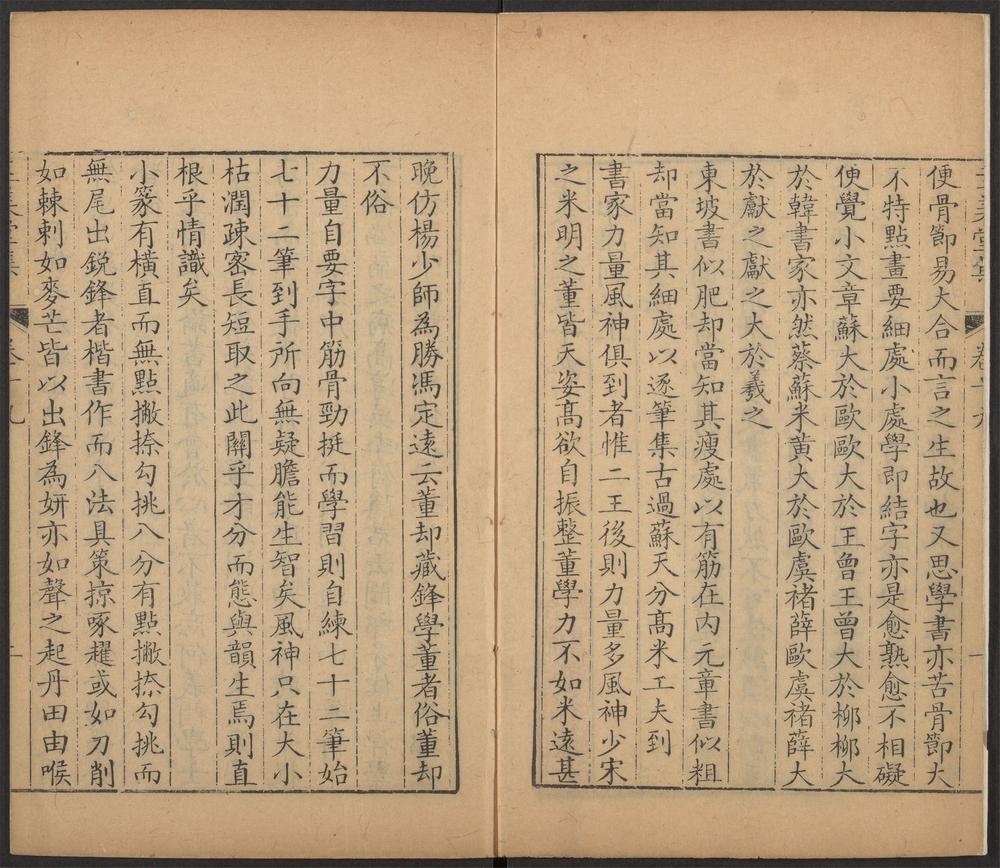 便骨節易大合而言之生故也又思學書亦苦骨節大
不特點畫要細處小處學即結字亦是愈熟愈不相礙
便覺小文章蘇大於歐歐大於王曾王曾大於柳柳大
於韓書家亦然蔡蘇米黃大於歐虞褚薛歐虞褚薛大
於獻之獻之大於羲之
東坡書似肥却當知其瘦處以有筋在內元章書似粗
却當知其細處以逐筆集古過蘇天分高米工夫到
書家力量風神俱到者惟二王後則力量多風神少宋
之米明之董皆天姿高欲自振整董學力不如米遠甚
晚仿楊少師為勝馮定遠云董却藏鋒學董者俗董却
不俗
力量自要字中筋骨勁挺而學習則自練七十二筆始
七十二筆到手所向無疑膽能生智矣風神只在大小
枯潤疎密長短取之此關乎才分而態與韻生焉則直
根乎情識矣
小篆有橫直而無點撇捺勾挑八分有點撇捺勾挑而
無尾出銳鋒者楷書作而八法具策掠啄趯或如刀削
如棘刺如麥芒皆以出鋒為妍亦如聲之起丹田由喉